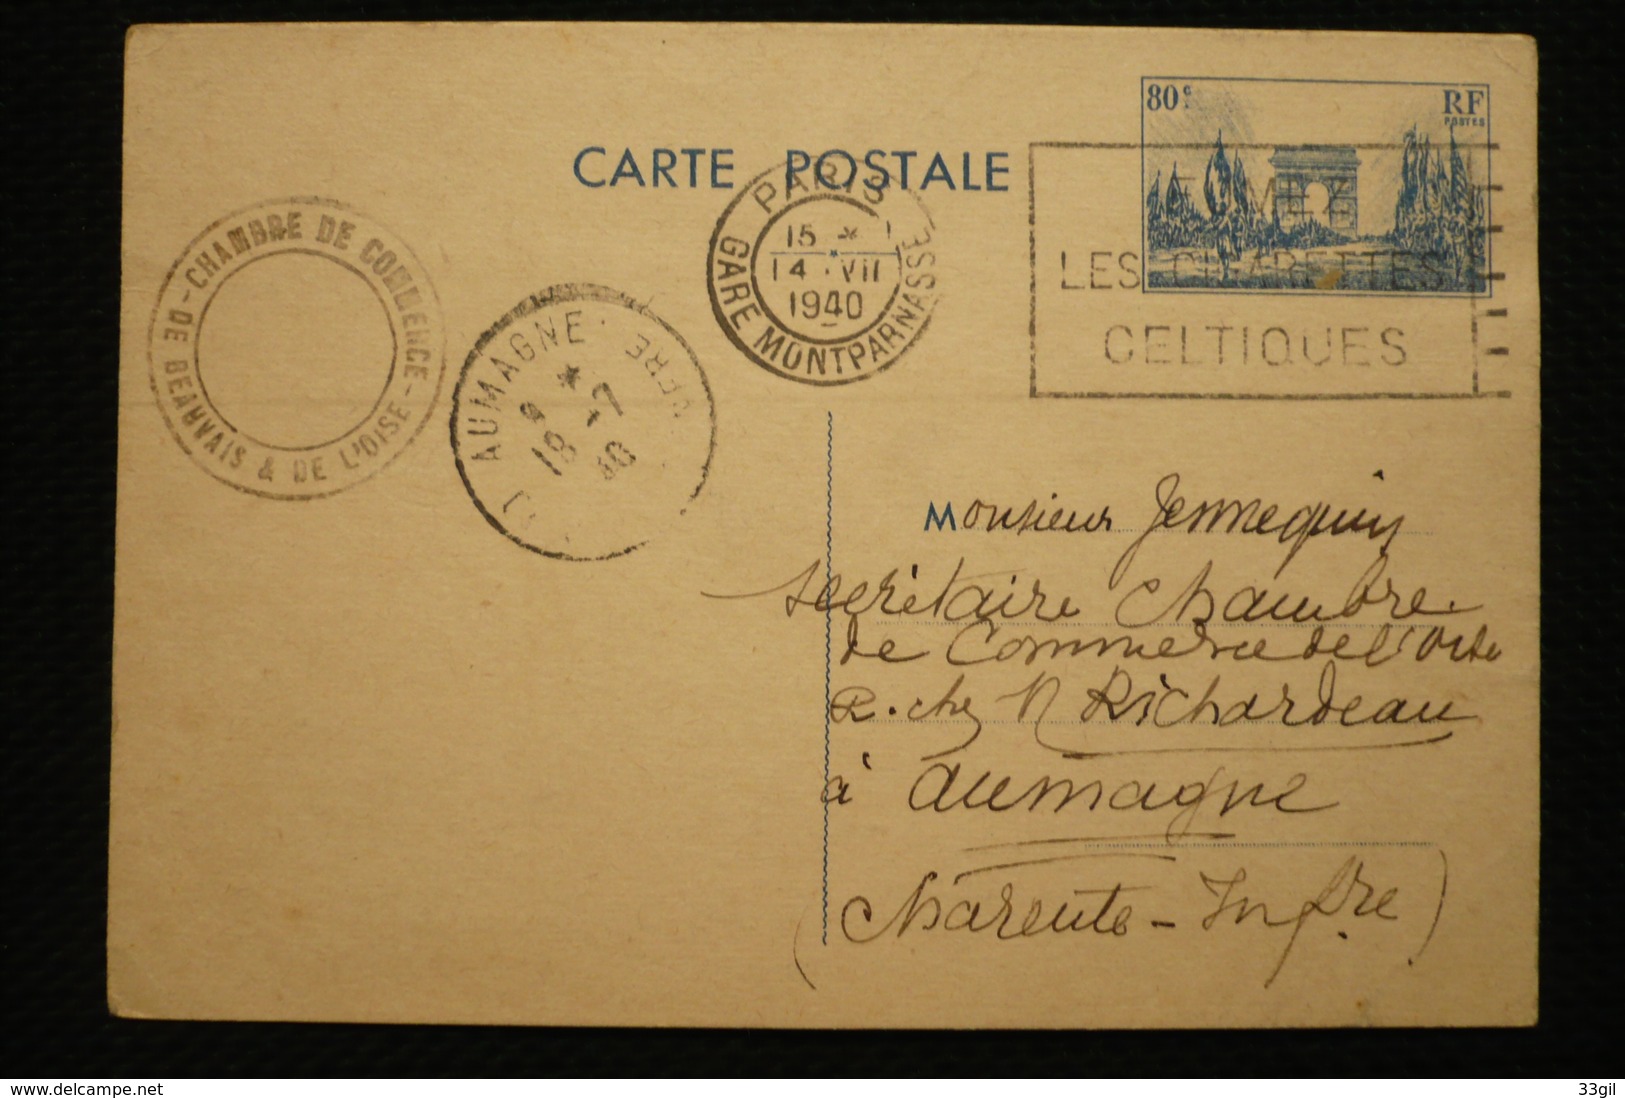 80c
RF
POSTES
CARTE POSTALE
PARIS
15 * 
14 · VII
1940
GARE MONTPARNASSE
FUMEZ
LES CIGARETTES
CELTIQUES
- CHAMBRE DE COMMERCE -
DE BEAUVAIS & DE L'OISE
AUMAGNE
18 -7
40
Monsieur Jennequin
Secrétaire Chambre
de Commerce de l'Oise
chez M Richardeau
à Aumagne
(Charente-Infre)
www.delcampe.net
33gil